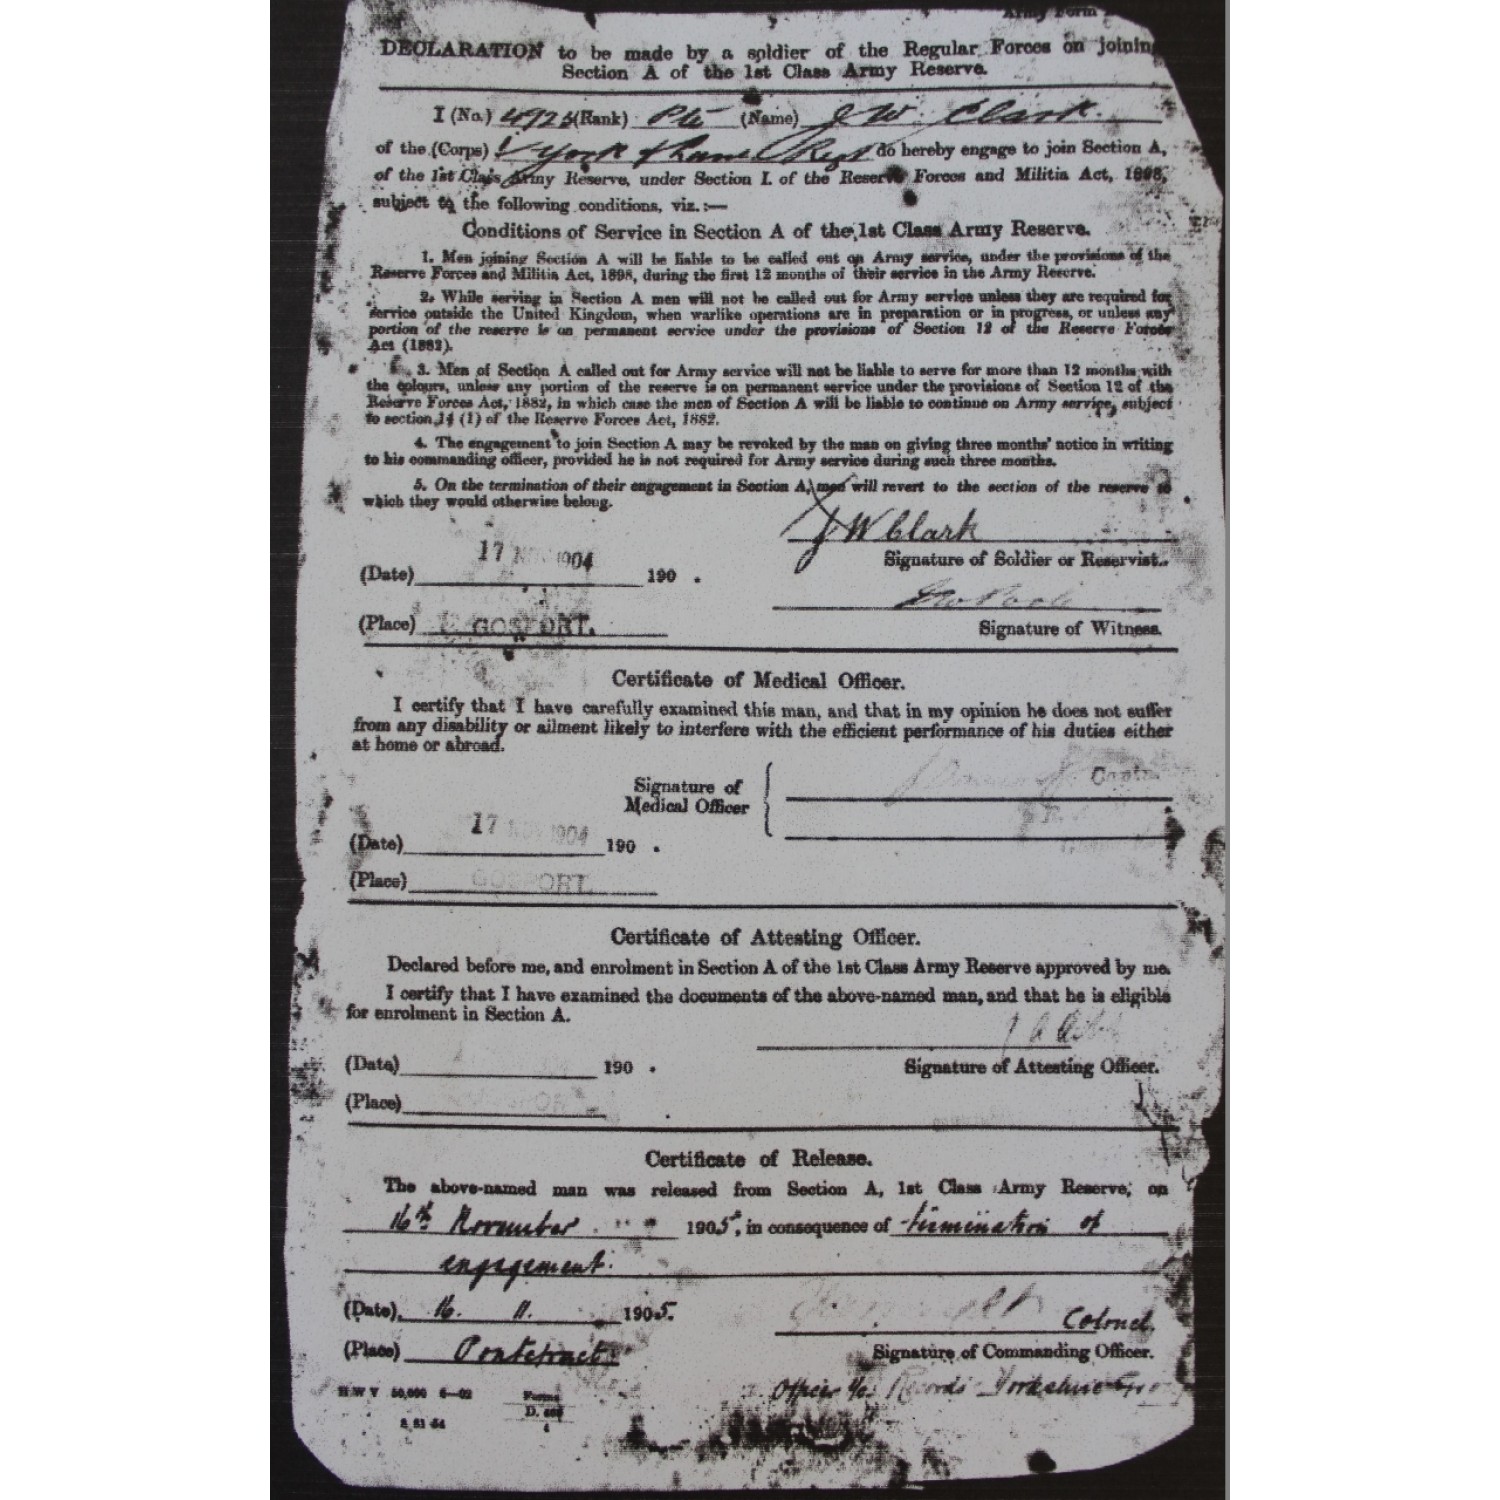 Army Form
DECLARATION to be made by a soldier of the Regular Forces on joining
Section A of the 1st Class Army Reserve.
I (No.) 4925 (Rank) Pte (Name) J W Clark.
of the (Corps) York & Lanc Regt do hereby engage to join Section A,
of the 1st Class Army Reserve, under Section I. of the Reserve Forces and Militia Act, 1898,
subject to the following conditions, viz.:—
Conditions of Service in Section A of the 1st Class Army Reserve.
1. Men joining Section A will be liable to be called out on Army service, under the provisions of the
Reserve Forces and Militia Act, 1898, during the first 12 months of their service in the Army Reserve.
2. While serving in Section A men will not be called out for Army service unless they are required for
service outside the United Kingdom, when warlike operations are in preparation or in progress, or unless any
portion of the reserve is on permanent service under the provisions of Section 12 of the Reserve Forces
Act (1882).
3. Men of Section A called out for Army service will not be liable to serve for more than 12 months with
the colours, unless any portion of the reserve is on permanent service under the provisions of Section 12 of the
Reserve Forces Act, 1882, in which case the men of Section A will be liable to continue on Army service, subject
to section 14 (1) of the Reserve Forces Act, 1882.
4. The engagement to join Section A may be revoked by the man on giving three months' notice in writing
to his commanding officer, provided he is not required for Army service during such three months.
5. On the termination of their engagement in Section A, men will revert to the section of the reserve to
which they would otherwise belong.
J W Clark
17 NOV 1904
Signature of Soldier or Reservist.
(Date) 190 .
(Place) GOSPORT.
Signature of Witness.
Certificate of Medical Officer.
I certify that I have carefully examined this man, and that in my opinion he does not suffer
from any disability or ailment likely to interfere with the efficient performance of his duties either
at home or abroad.
Signature of
Medical Officer
17 NOV 1904
(Date) 190 .
(Place) GOSPORT.
Certificate of Attesting Officer.
Declared before me, and enrolment in Section A of the 1st Class Army Reserve approved by me.
I certify that I have examined the documents of the above-named man, and that he is eligible
for enrolment in Section A.
(Date) 190 .
Signature of Attesting Officer.
(Place)
Certificate of Release.
The above-named man was released from Section A, 1st Class Army Reserve, on
16th November 1905, in consequence of termination of
engagement.
(Date) 16. 11. 1905.
Colonel.
(Place) Pontefract
Signature of Commanding Officer.
Officer i/c. Records Yorkshire
H W V 50,000 6—02
Forms
D.